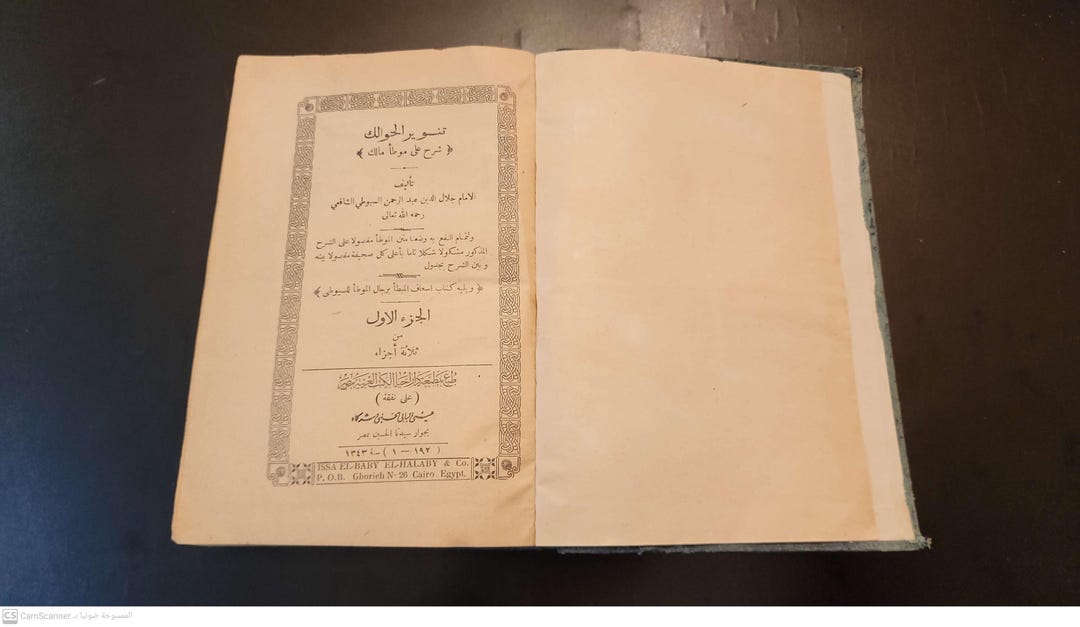 تنوير الحوالك
﴿ شرح على موطأ مالك ﴾
تأليف
الامام جلال الدين عبد الرحمن السيوطي الشافعي
رحمه الله تعالى
ولتمام النفع به وضعنا متن الموطأ مفصولا على الشرح
المذكور مشكولا شكلا تاما بأعلى كل صحيفة مفصولا بينه
وبين الشرح بجدول
﴿ ويليه كتاب إسعاف المبطأ برجال الموطأ للسيوطى ﴾
الجزء الاول
من
ثلاثة أجزاء
طبع بمطبعة دار احياء الكتب العربية بمصر
( على نفقة )
عيسى البابى الحلبى وشركاه
بجوار سيدنا الحسين بمصر
( ١٩٢ — ١ ) سنة ١٣٤٣
ISSA EL-BABY EL-HALABY & Co.
P. O. B. Ghorieh N· 26 Cairo Egypt.
CS CamScanner الممسوحة ضوئيا بـ